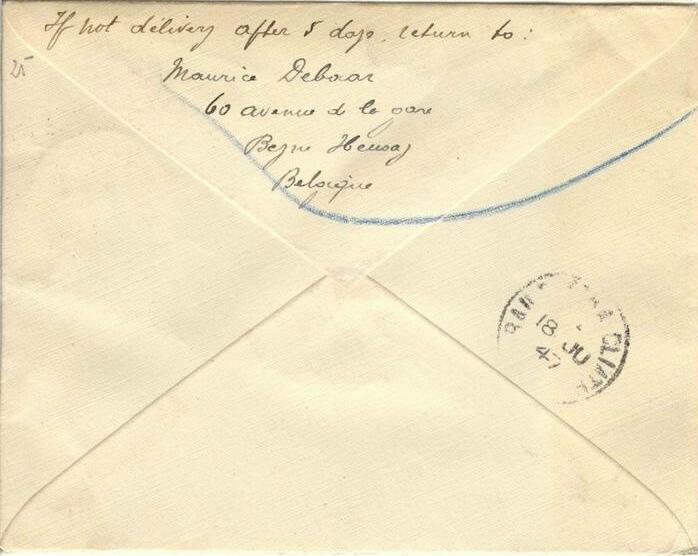 If not délivery after 5 days, return to:
25
Maurice Debaar
60 avenue d la gare
Beyne Heusay
Belgique
18 JU
47
CLIATH